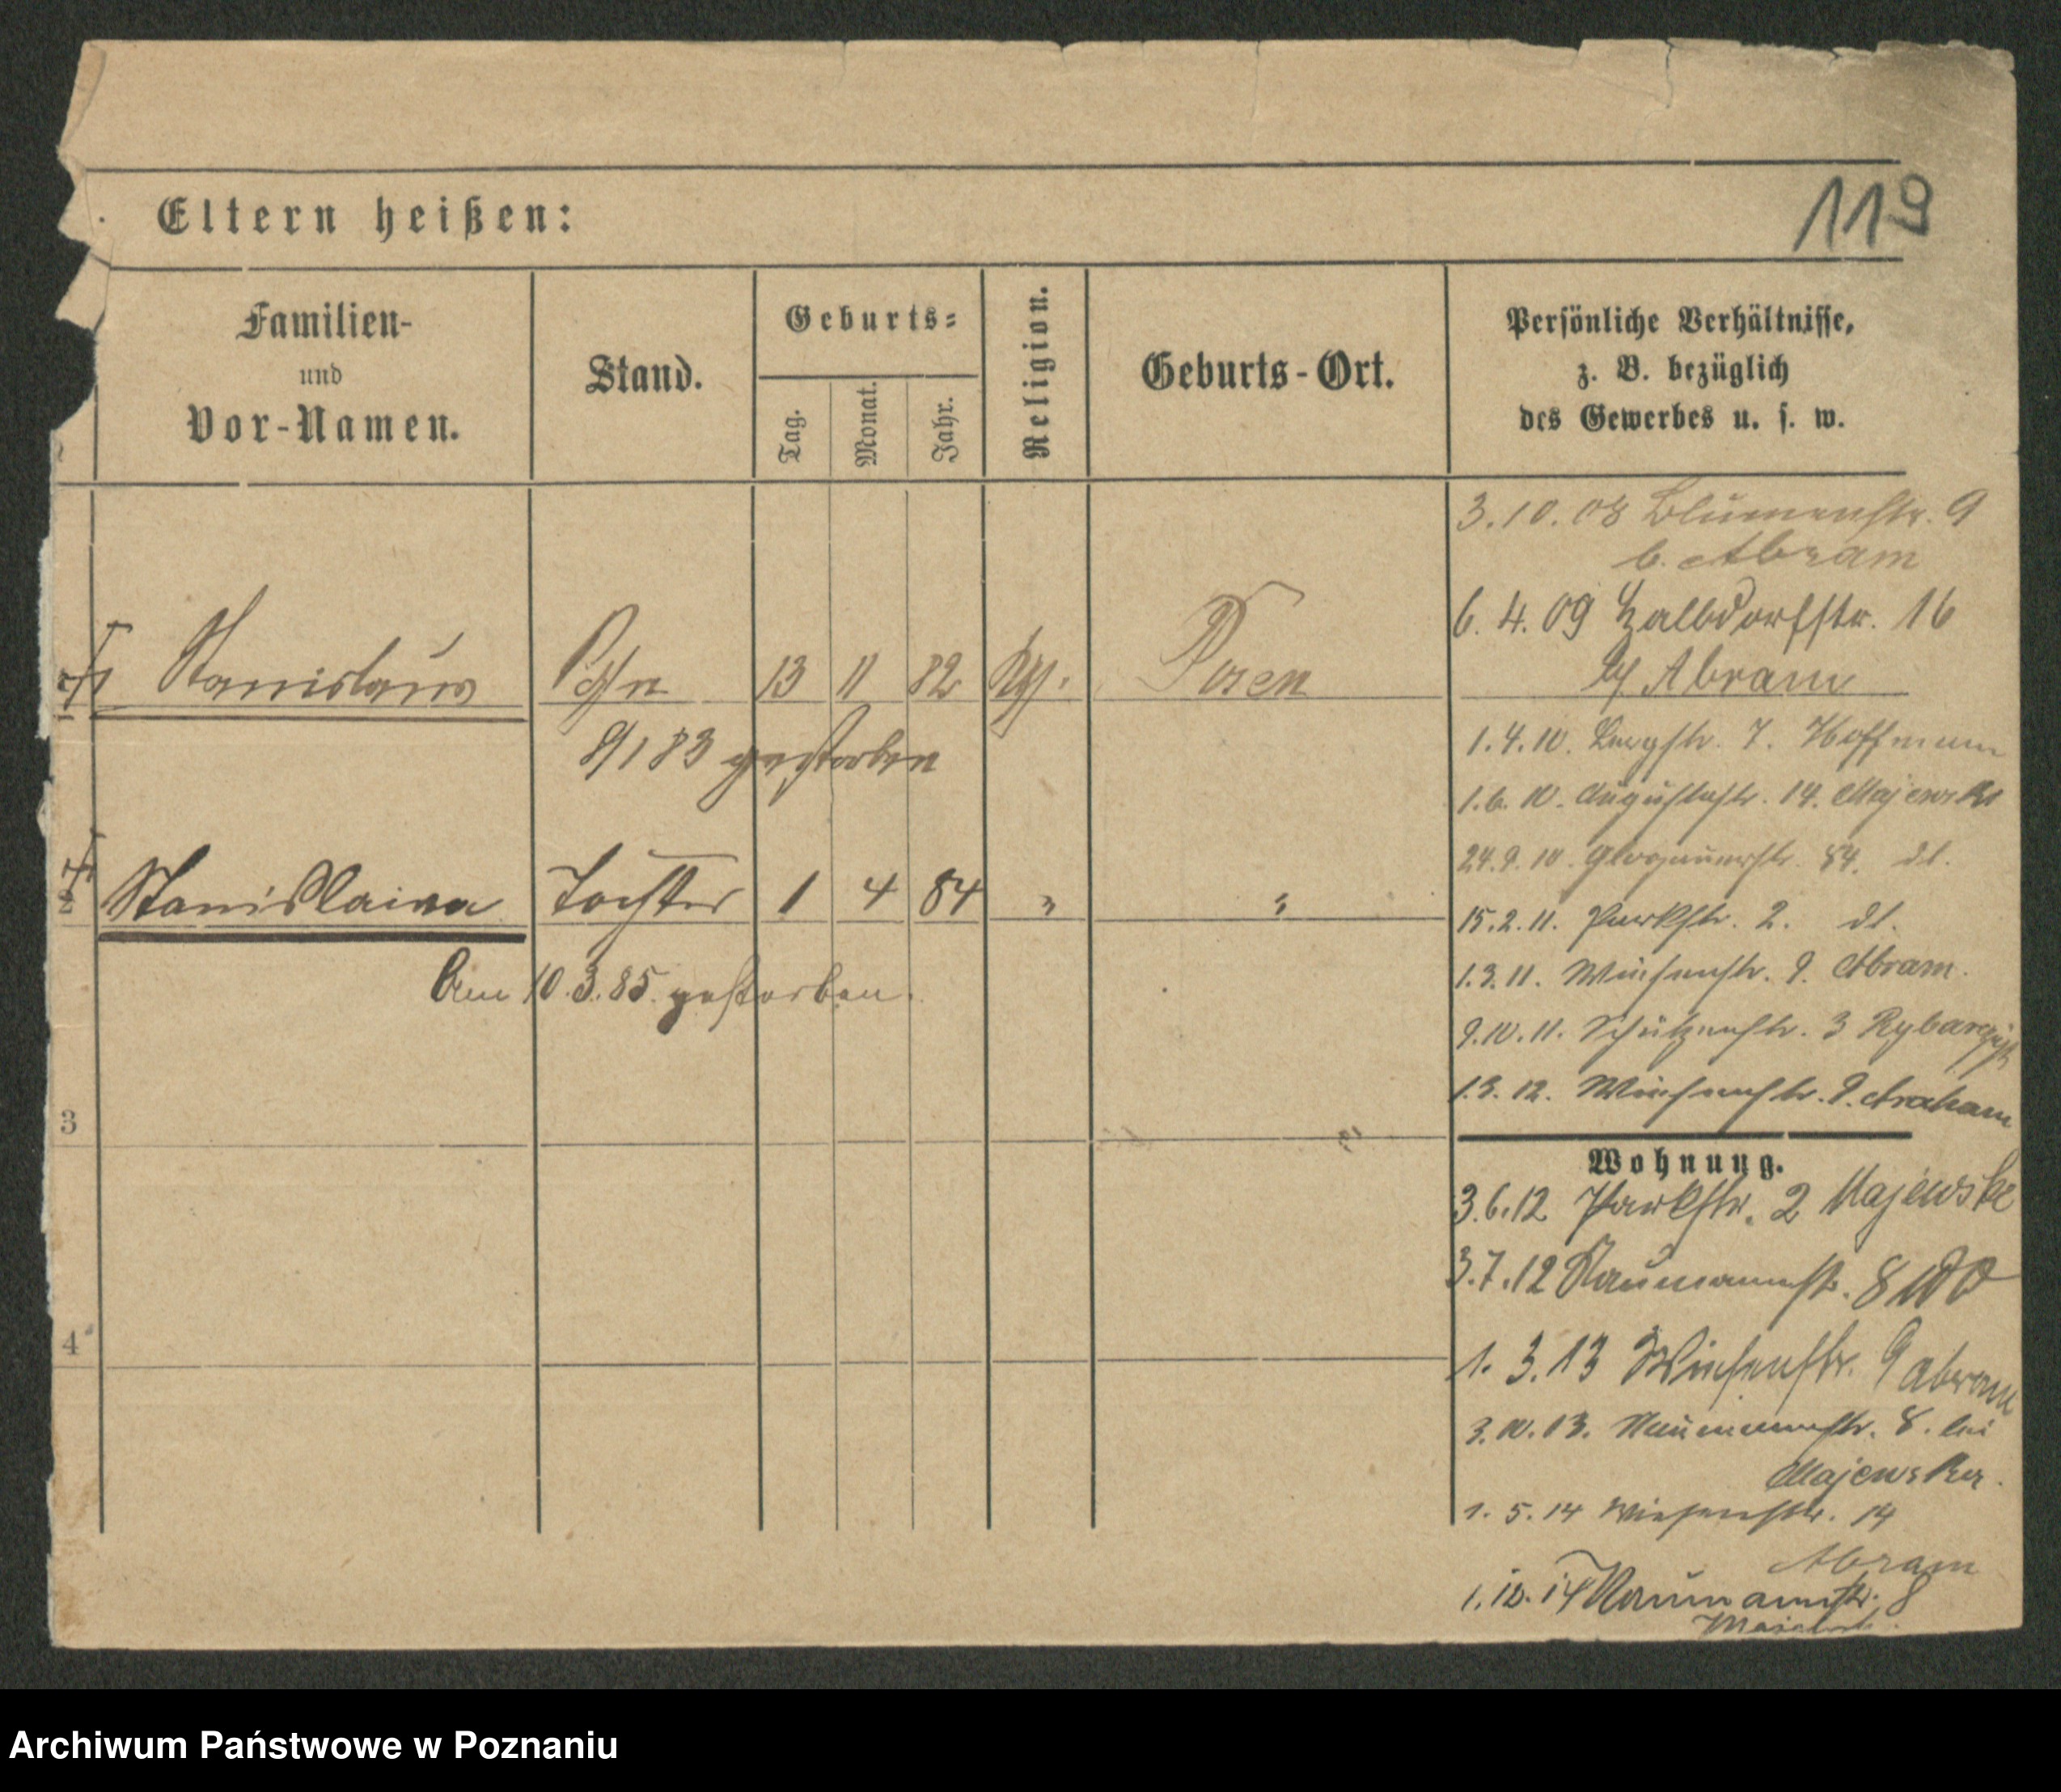 119
Eltern heißen:
Familien-
und
Vor-Namen.
Stand.
Geburts-
Tag.
Monat.
Jahr.
Religion.
Geburts-Ort.
Persönliche Verhältnisse,
z. B. bezüglich
des Gewerbes u. s. w.
3.10.08 Blumenstr. 9
b. Abram
6.4.09 Halbdorfstr. 16
Abram
1 Stanislaus 13 11 82 Posen
8/1 83 gestorben
1.4.10. Bergstr. 7. Hoffmann
1.6.10. Augustastr. 14. Majewski
24.9.10. Glogauerstr. 84. dt.
2 Stanislawa Tochter 1 4 84 " "
15.2.11. Parkstr. 2. dt.
Am 10.3.85. gestorben.
1.3.11. Wiesenstr. 9. Abram.
9.10.11. Schützenstr. 3
1.3.12. Wiesenstr. 9.
3
Wohnung.
3.6.12 Parkstr. 2 Majewski
3.7.12 Naumannstr. 8
4
1.3.13 Wiesenstr. 9 Abram
3.10.13. Naumannstr. 8. bei
Majewska.
1.5.14 Wiesenstr. 14
Abram
1.10.14 Naumannstr. 8
Archiwum Państwowe w Poznaniu